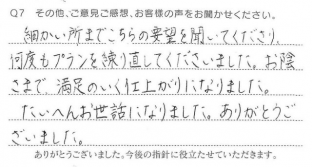 Q7 その他、ご意見ご感想、お客様の声をお聞かせください。
細かい所までこちらの要望を聞いてくださり、
何度もプランを練り直してくださいました。お陰
さまで、満足のいく仕上がりになりました。
たいへんお世話になりました。ありがとうご
ざいました。
ありがとうございました。今後の指針に役立たせていただきます。